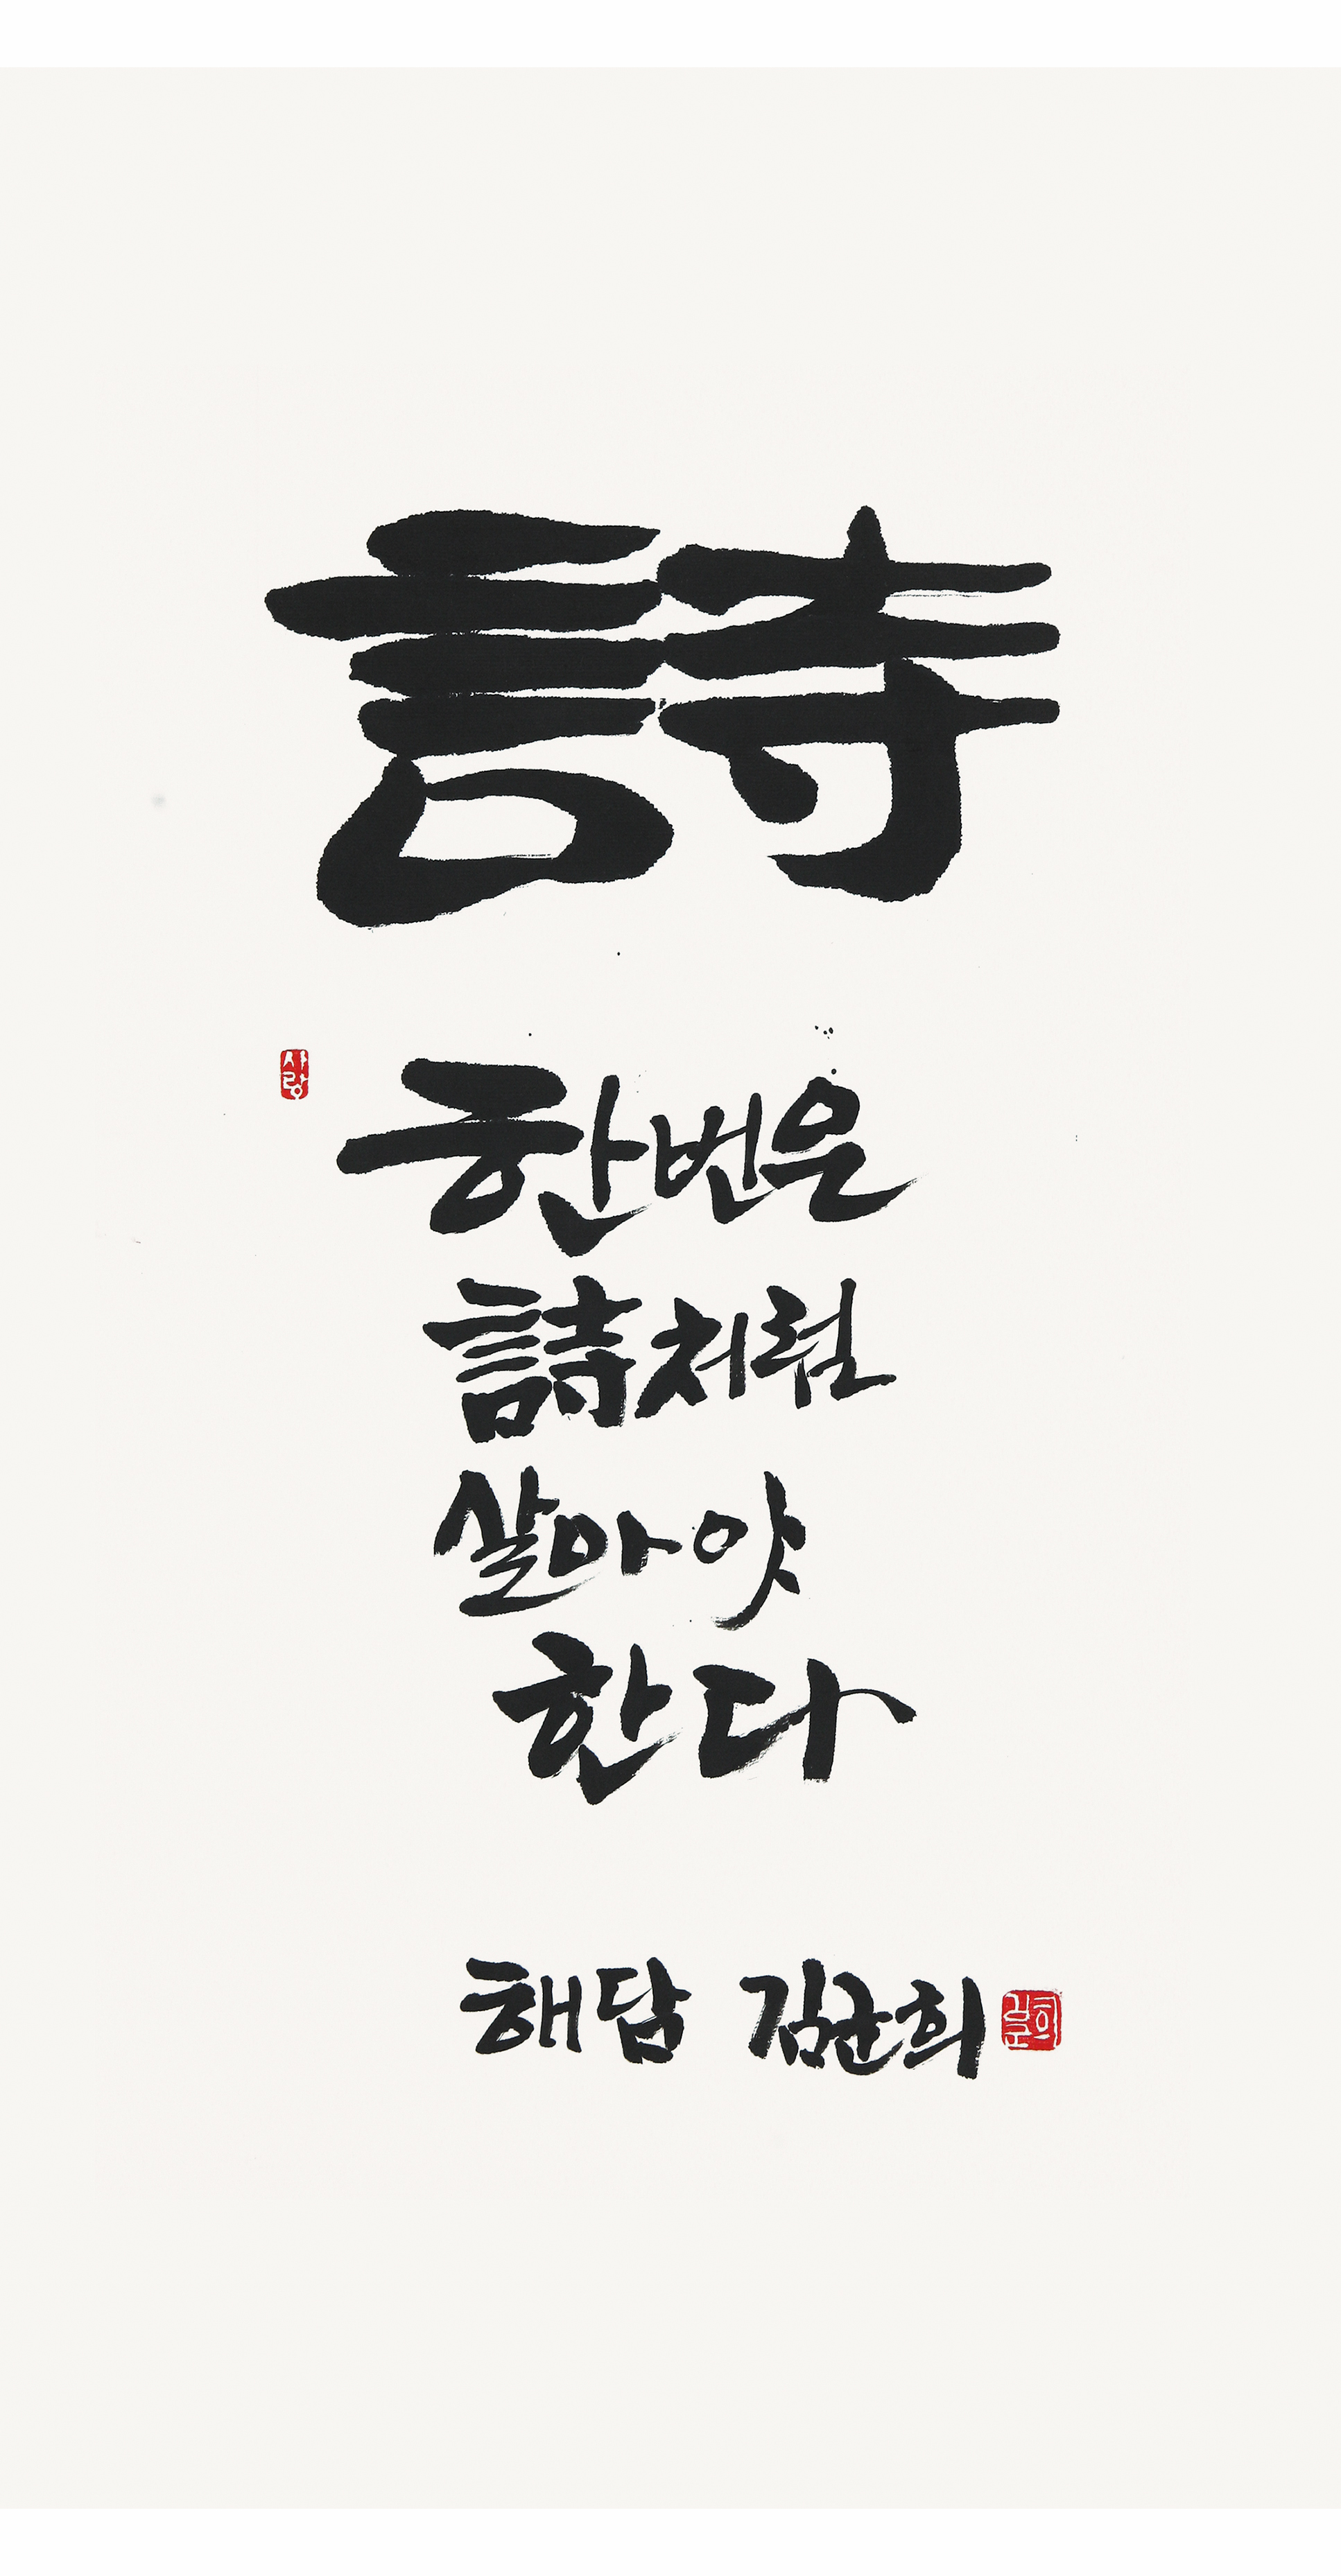 詩
사랑
한번은
詩처럼
살아야
한다
해담 김균희